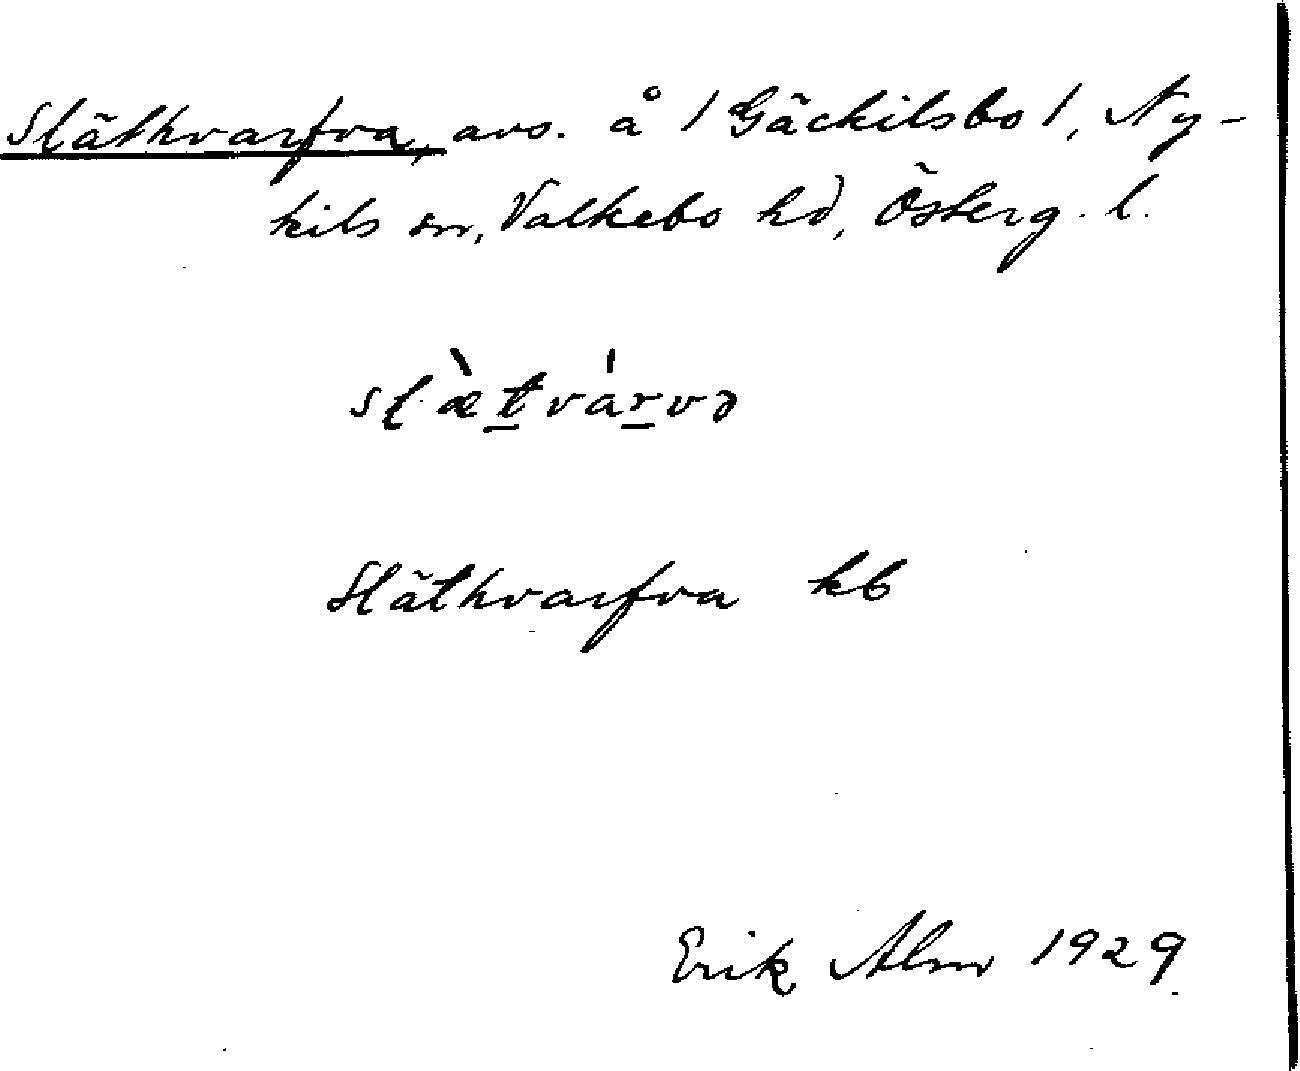 Släthvarfva, avs. å / Gäckilsbo /, Ny-
kils sn, Valkebo hd, Österg. l.
slæ̀tvárvə
Släthvarfva kb
Erik Alm 1929